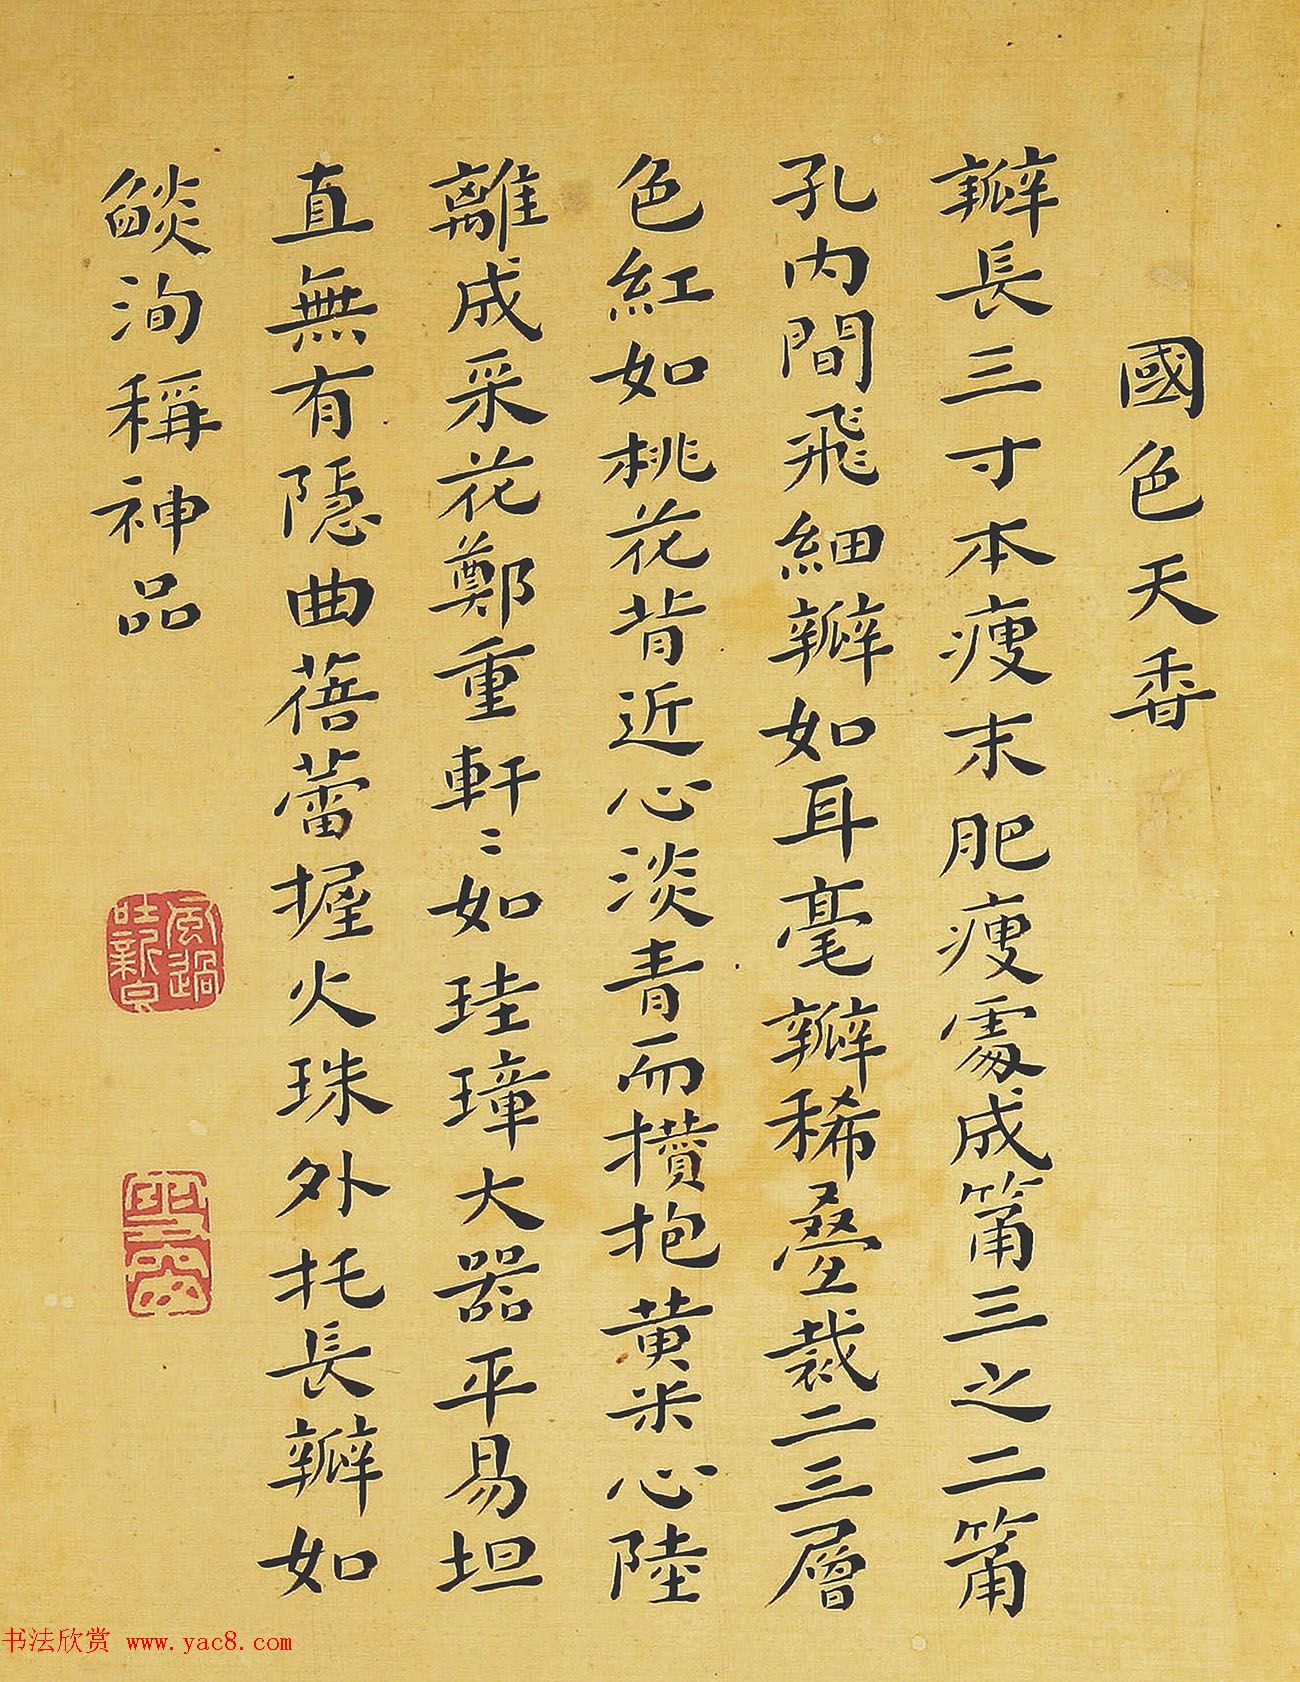 國色天香
瓣長三寸本瘦末肥瘦處成筩三之二筩
孔內間飛細瓣如耳毫瓣稀疊裁二三層
色紅如桃花背近心淡青而攢抱黃米心陸
離成采花鄭重軒〻如珪璋大器平易坦
直無有隱曲蓓蕾握火珠外托長瓣如
燄洵稱神品
书法欣赏 www.yac8.com